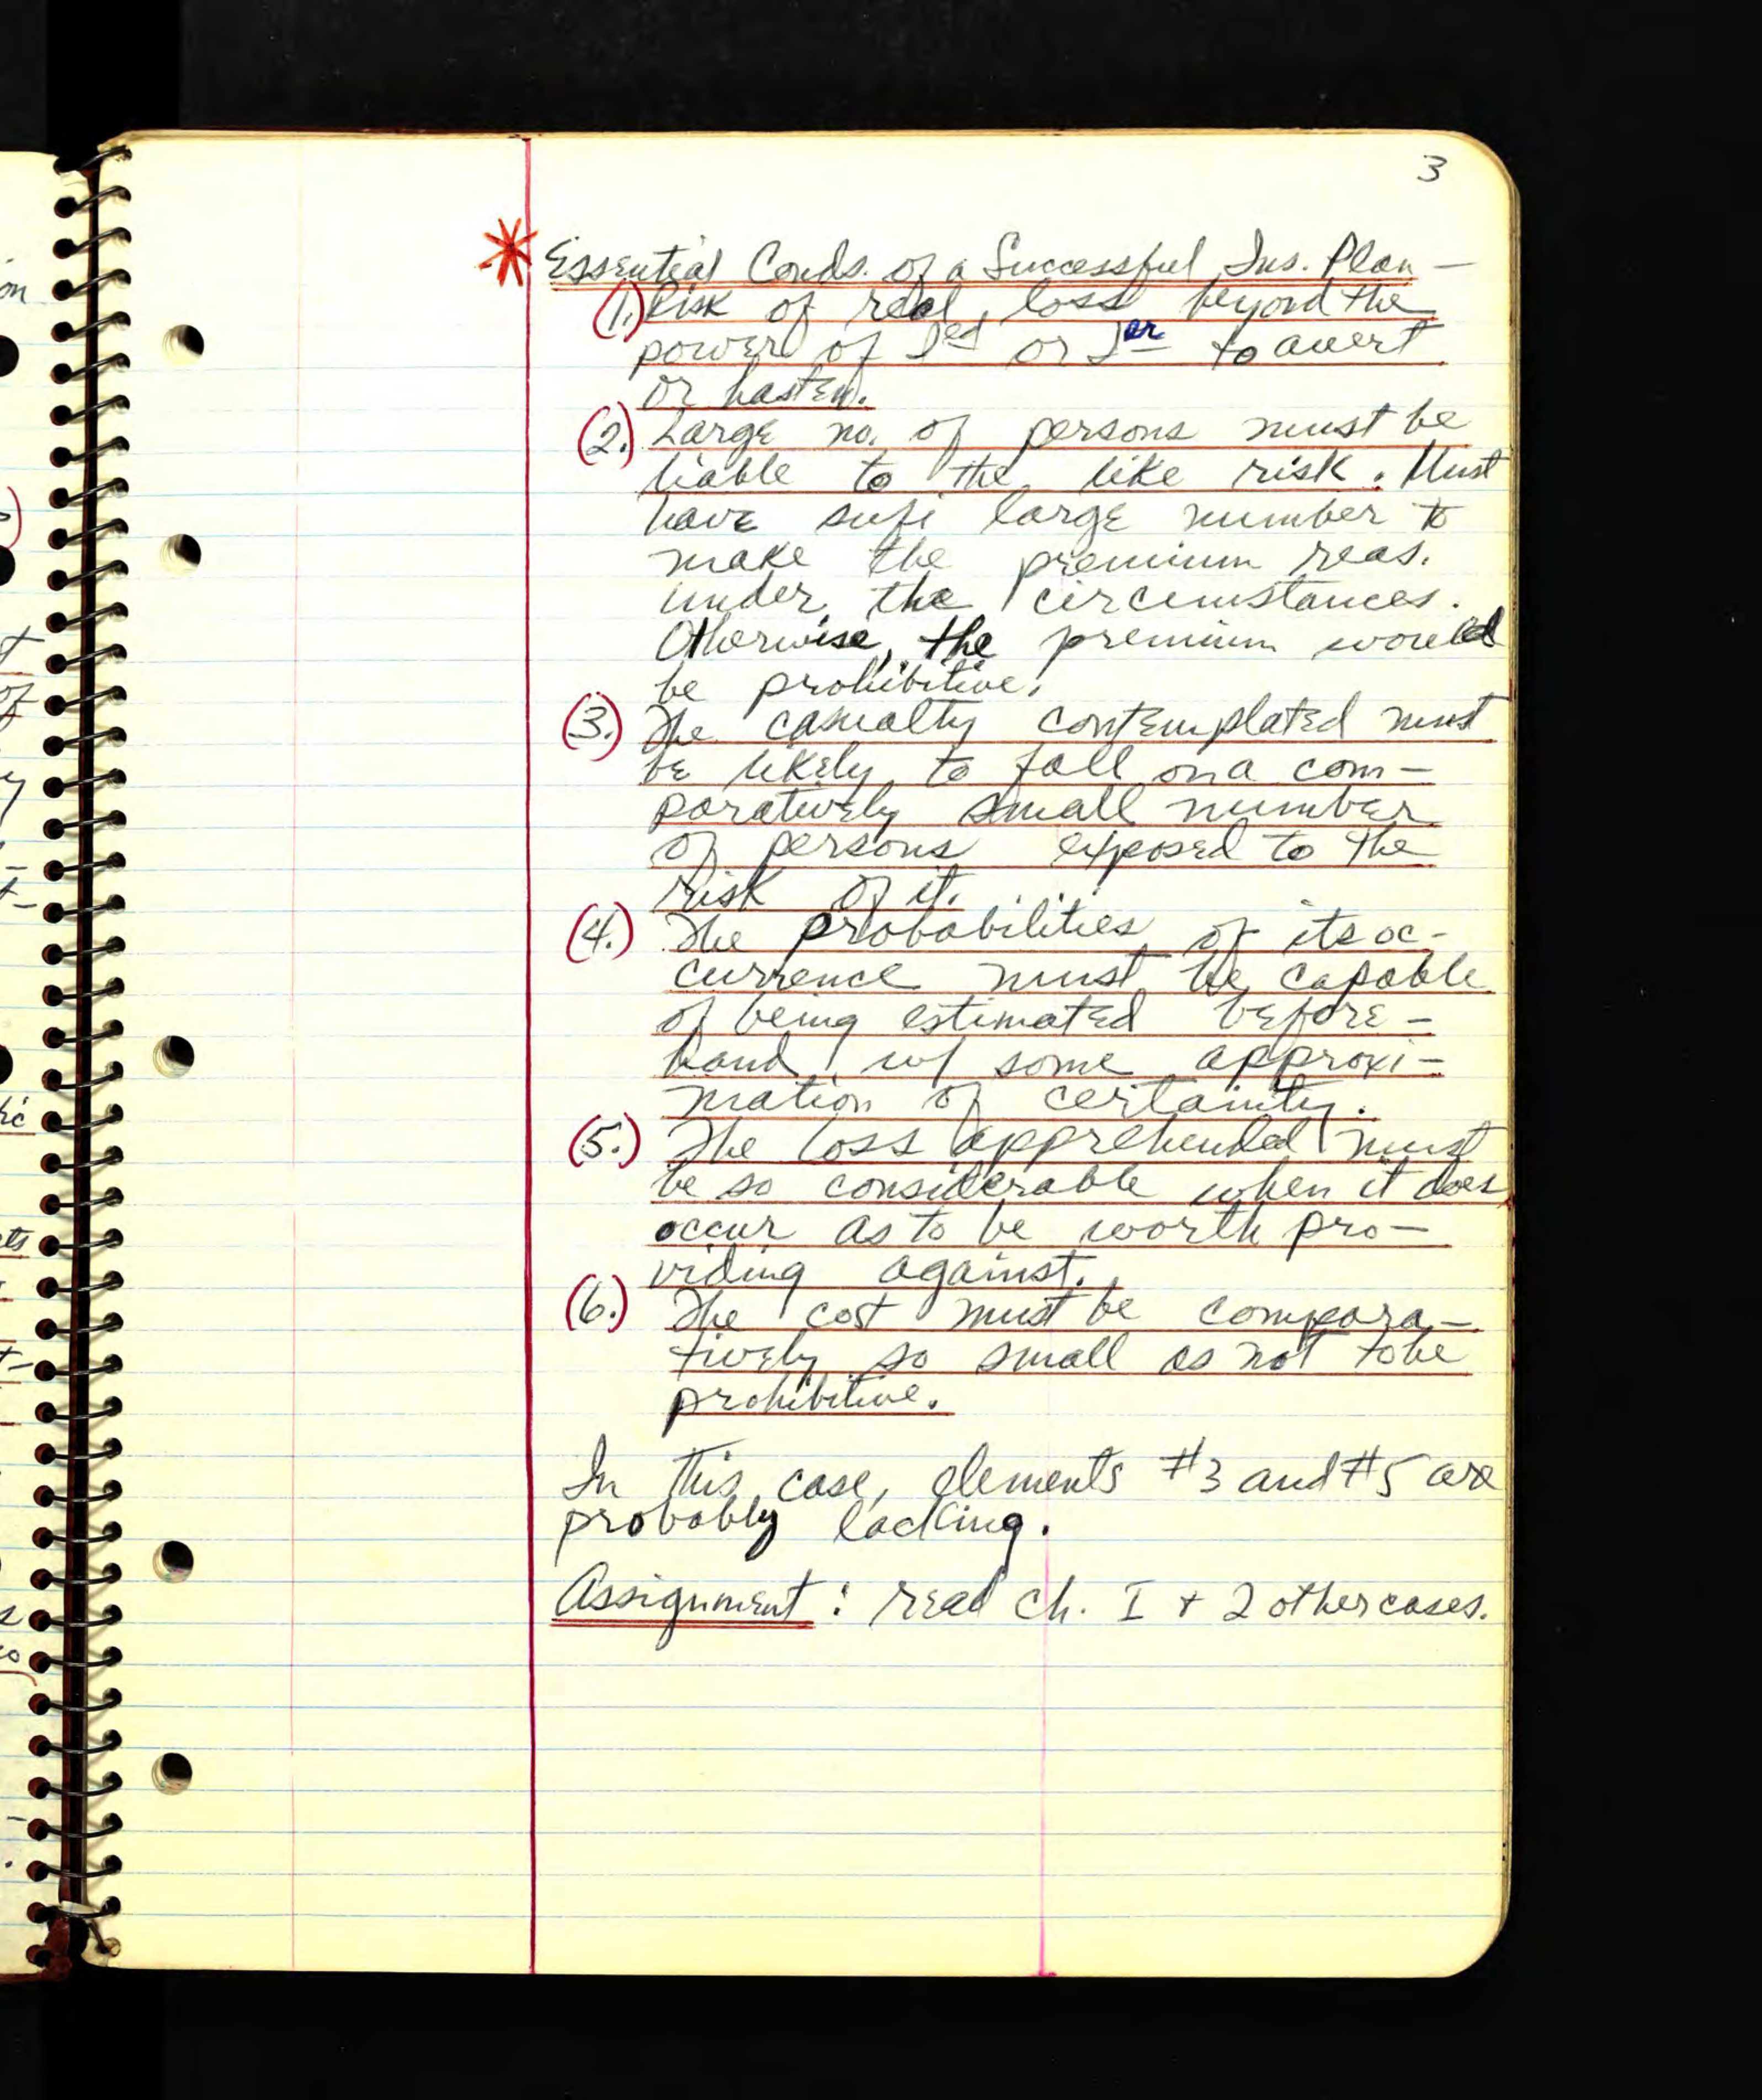 3
* Essential Conds. of a Successful Ins. Plan —
(1.) Risk of real loss beyond the
power of Ied or Ier to avert
or hasten.
(2.) Large no. of persons must be
liable to the like risk. Must
have sufi large number to
make the premium reas.
under the circumstances.
Otherwise, the premium would
be prohibitive.
(3.) The casualty contemplated must
be likely to fall on a com-
paratively small number
of persons exposed to the
risk of it.
(4.) The probabilities of its oc-
currence must be capable
of being estimated before-
hand w/ some approxi-
mation of certainity.
(5.) The loss apprehended must
be so considerable when it does
occur as to be worth pro-
viding against.
(6.) The cost must be compara-
tively so small as not to be
prohibitive.
In this case, elements #3 and #5 are
probably lacking.
Assignment: read ch. I + 2 other cases.